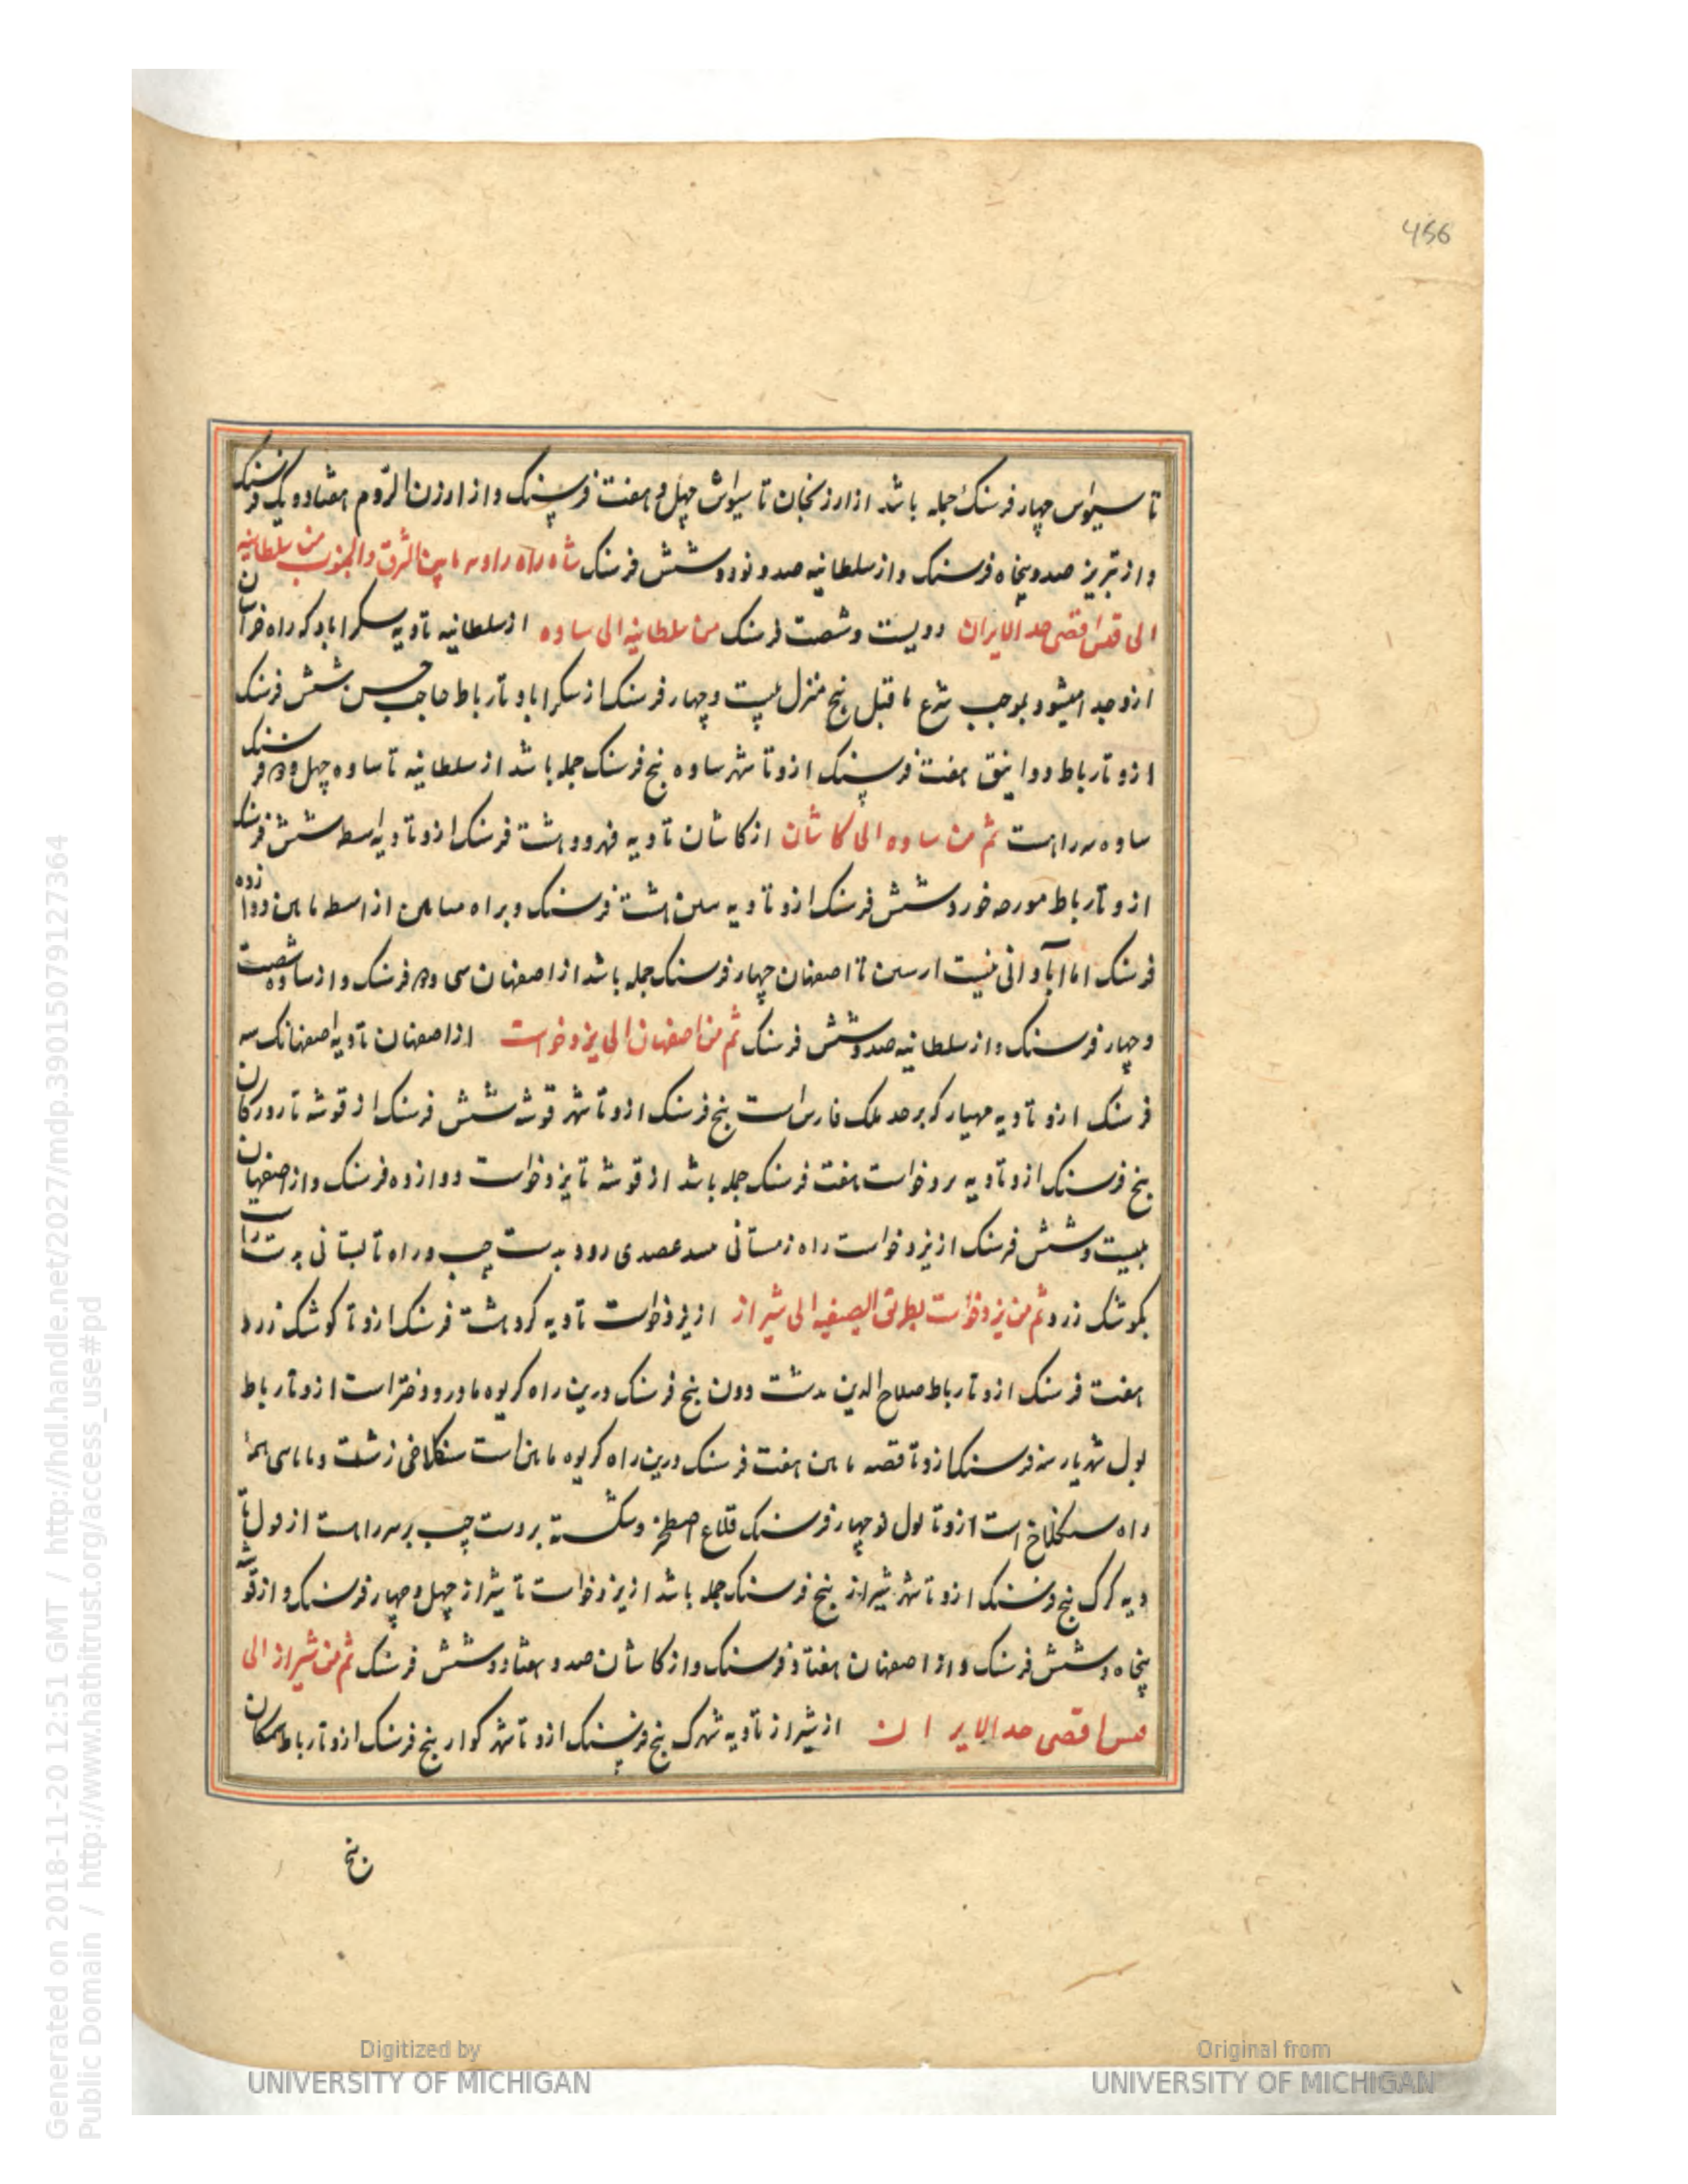 456
تا سیواس چهار فرسنک جمله باشد از ارزنجان تا سیواس چهل و هفت فرسنک و از ارزن الروم هفتاد و یک فرسنک
و از تبریز صد و پنجاه فرسنک و از سلطانیه صد و نود و شش فرسنک شاه راه راویه مابین الشرق والجنوب من سلطانیه
الی قیس اقصی حد الایران دویست و شصت فرسنک من سلطانیه الی ساوه از سلطانیه تا دیه سکراباد که راه خراسان
ازو جدا میشود بموجب شرع ماقبل پنج منزل بیست و چهار فرسنک از سکراباد تا رباط حاجب حسن شش فرسنک
ازو تا رباط دوانیق هفت فرسنک ازو تا شهر ساوه پنج فرسنک جمله باشد از سلطانیه تا ساوه چهل و دو فرسنک
ساوه سر راهست ثم من ساوه الی کاشان از کاشان تا دیه قهرود هشت فرسنک ازو تا دیه اسطه شش فرسنک
ازو تا رباط مورچه خورد شش فرسنک ازو تا دیه سین هشت فرسنک و براه میانی از اسطه تا سین دوازده
فرسنک اما آبادانی نیست از سین تا اصفهان چهار فرسنک جمله باشد از اصفهان سی و دو فرسنک و از ساوه شصت
و چهار فرسنک و از سلطانیه صد و شش فرسنک ثم من اصفهان الی یزدخواست از اصفهان تا دیه اصفهانک سه
فرسنک ازو تا دیه مهیار که بر حد ملک فارس است پنج فرسنک ازو تا شهر قوشه شش فرسنک از قوشه تا رودکان
پنج فرسنک ازو تا دیه یزدخواست هفت فرسنک جمله باشد از قوشه تا یزدخواست دوازده فرسنک و از اصفهان
بیست و شش فرسنک از یزدخواست راه زمستانی رود بدست چپ و راه تابستانی بدست راست
بکوشک زرد ثم من یزدخواست بطریق الصیفیه الی شیراز از یزدخواست تا دیه کرد هشت فرسنک ازو تا کوشک زرد
هفت فرسنک ازو تا رباط صلاح الدین بدشت دون پنج فرسنک درین راه کریوه مادر و دختر است ازو تا رباط
پول شهریار سه فرسنک ازو تا قصبه مایین هفت فرسنک درین راه کریوه مایین است سنکلاخی زشت و همه
راه سنکلاخ است ازو تا پول نو چهار فرسنک قلاع اصطخر و شکسته بر دست چپ بر سر راهست از پول تا
دیه کرک پنج فرسنک ازو تا شهر شیراز پنج فرسنک جمله باشد از یزدخواست تا شیراز چهل و چهار فرسنک و از قوشه
پنجاه و شش فرسنک و از اصفهان هفتاد فرسنک و از کاشان صد و هفتاد و شش فرسنک ثم من شیراز الی
قیس اقصی حد الایران از شیراز تا دیه شهرک پنج فرسنک ازو تا شهر کوار پنج فرسنک ازو تا رباط جمکان
پنج
Generated on 2018-11-20 12:51 GMT / http://hdl.handle.net/2027/mdp.39015079127364
Public Domain / http://www.hathitrust.org/access_use#pd
Digitized by
UNIVERSITY OF MICHIGAN
Original from
UNIVERSITY OF MICHIGAN